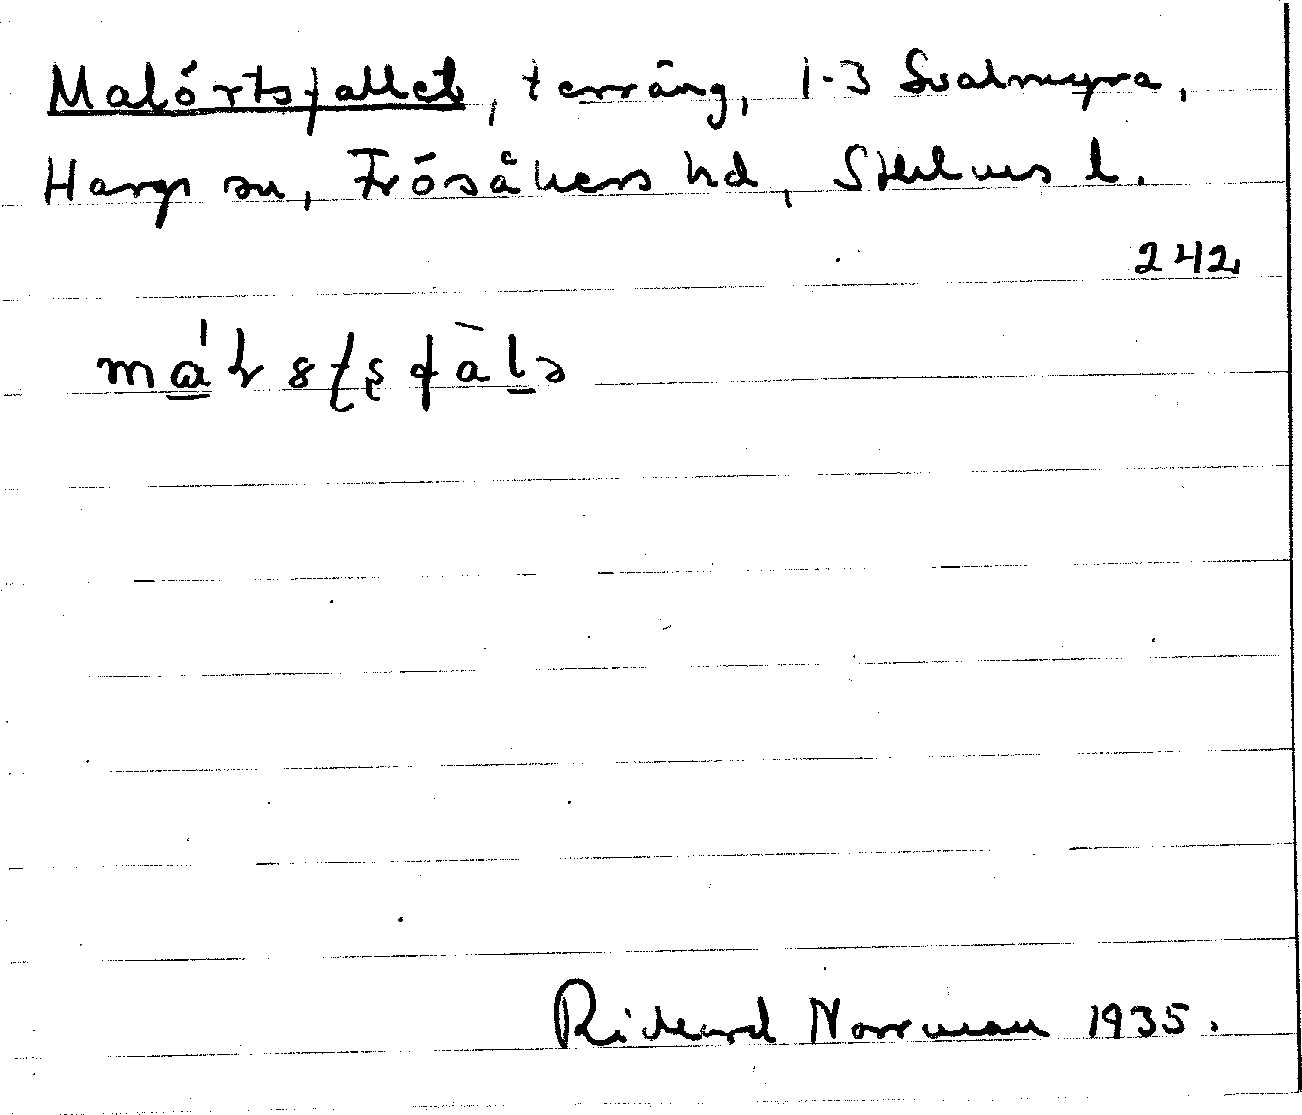 Malörtsfallet, terräng, 1-3 Svalmyra,
Hargs sn, Frösåkers hd, Sthlms l.
242
Rickard Norrman 1935.